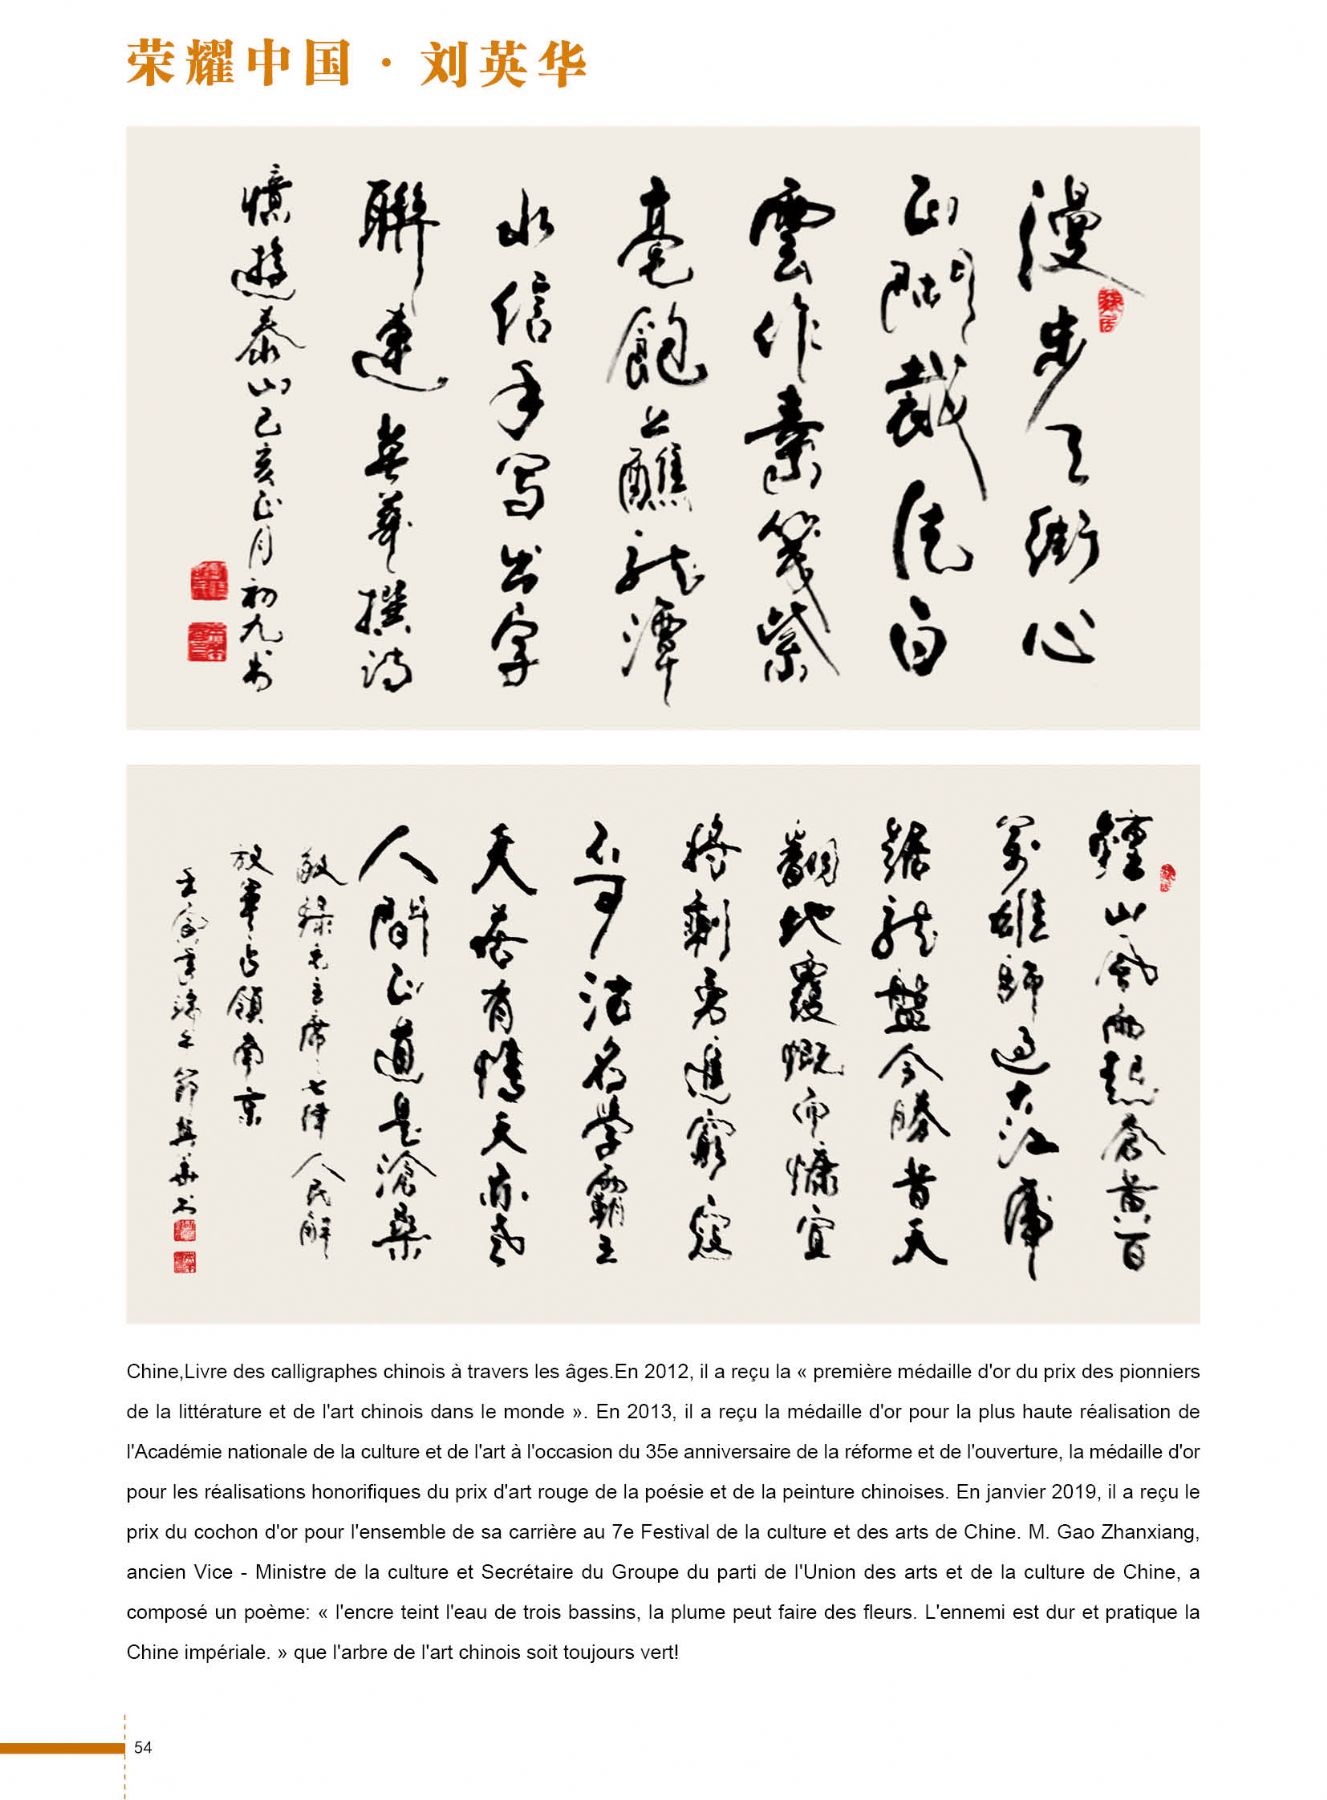 荣耀中国·刘英华
漫步天街心
正閒裁白
雲作素箋紫
毫飽蘸龍潭
水信手寫出字
聯連英華撰詩
憶遊泰山己亥正月初九书
鍾山風雨起蒼黄百
萬雄師過大江虎
踞龍盤今勝昔天
翻地覆慨而慷宜
將剩勇追窮寇
不可沽名學霸王
天若有情天亦老
人間正道是滄桑
敬録毛主席七律人民解
放軍占領南京
壬寅年端午節英華书
Chine,Livre des calligraphes chinois à travers les âges.En 2012, il a reçu la « première médaille d'or du prix des pionniers
de la littérature et de l'art chinois dans le monde ». En 2013, il a reçu la médaille d'or pour la plus haute réalisation de
l'Académie nationale de la culture et de l'art à l'occasion du 35e anniversaire de la réforme et de l'ouverture, la médaille d'or
pour les réalisations honorifiques du prix d'art rouge de la poésie et de la peinture chinoises. En janvier 2019, il a reçu le
prix du cochon d'or pour l'ensemble de sa carrière au 7e Festival de la culture et des arts de Chine. M. Gao Zhanxiang,
ancien Vice - Ministre de la culture et Secrétaire du Groupe du parti de l'Union des arts et de la culture de Chine, a
composé un poème: « l'encre teint l'eau de trois bassins, la plume peut faire des fleurs. L'ennemi est dur et pratique la
Chine impériale. » que l'arbre de l'art chinois soit toujours vert!
54